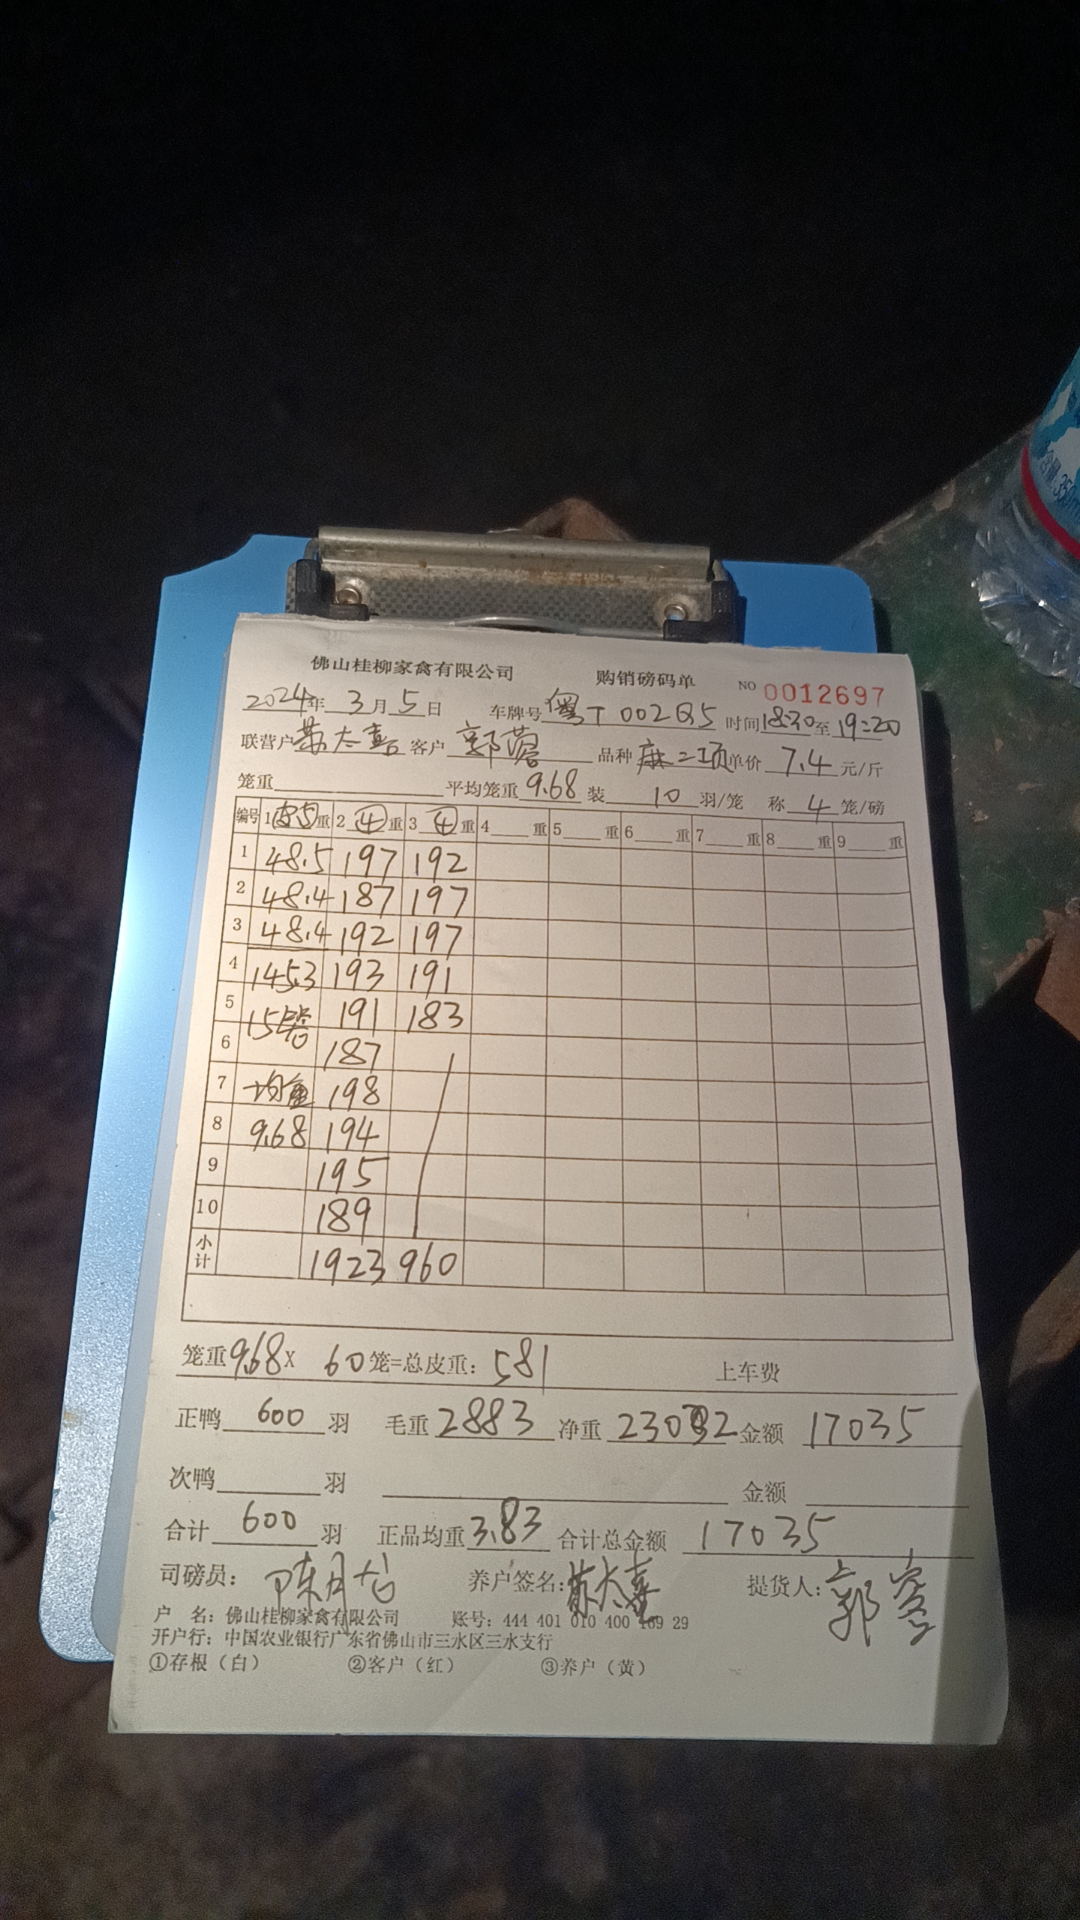 佛山桂柳家禽有限公司 购销磅码单 NO 0012697
2024年 3月5日 车牌号 粤T002Q5 时间18:30至19:20
联营户 客户 郭蓉 品种 麻二项 单价 7.4 元/斤
笼重 平均笼重 9.68 装 10 羽/笼 称 4 笼/磅
编号 1 重 2 ④ 重 3 ④ 重 4 重 5 重 6 重 7 重 8 重 9 重
1 48.5 197 192
2 48.4 187 197
3 48.4 192 197
4 145.3 193 191
5 15 191 183
6 187
7 均重 198
8 9.68 194
9 195
10 189
小计 1923 960
笼重9.68X 60笼=总皮重: 581 上车费
正鸭 600 羽 毛重 2883 净重 2302 金额 17035
次鸭 羽 金额
合计 600 羽 正品均重 3.83 合计总金额 17035
司磅员: 养户签名: 提货人: 郭蓉
户 名: 佛山桂柳家禽有限公司 账号: 444 401 010 400 469 29
开户行: 中国农业银行广东省佛山市三水区三水支行
①存根（白） ②客户（红） ③养户（黄）